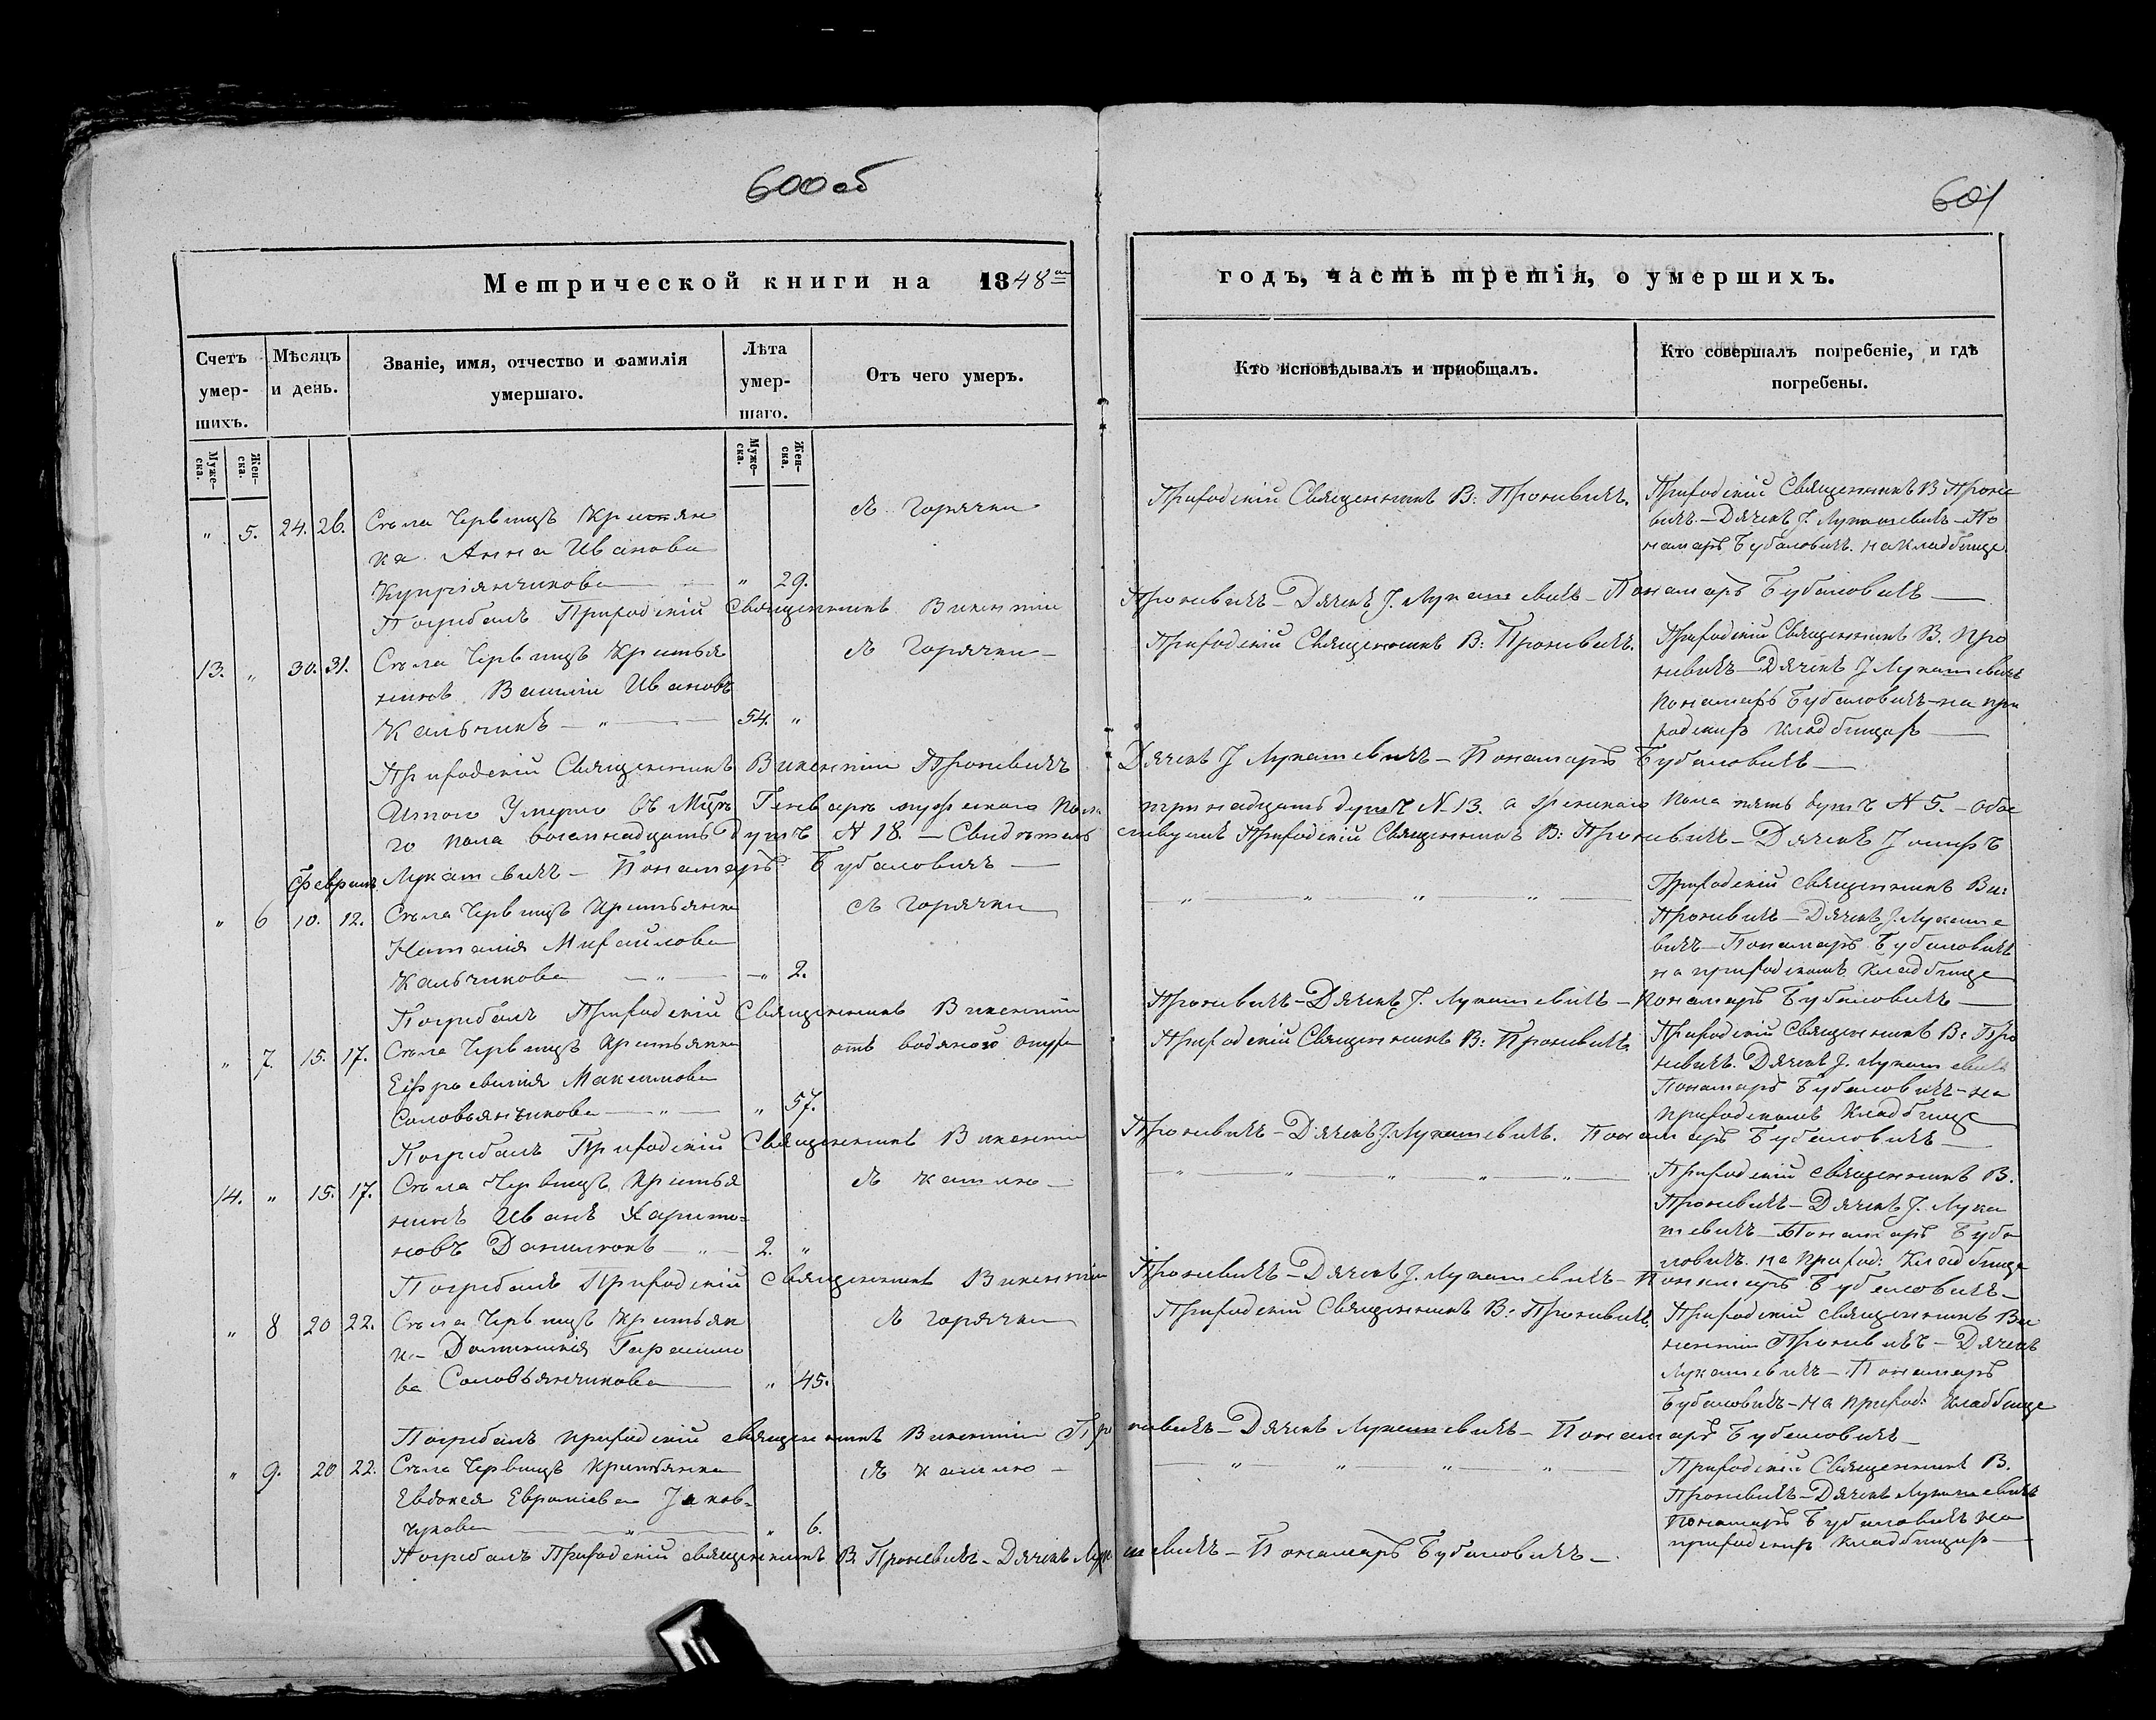 600об
601
Метрической книги на 1848й
годъ, часть третія, о умершихъ.
Счетъ умер-
шихъ.
Мѣсяцъ
и день.
Званіе, имя, отчество и фамилія
умершаго.
Лѣта
умер-
шаго.
Отъ чего умеръ.
Кто исповѣдывалъ и пріобщалъ.
Кто совершалъ погребеніе, и гдѣ
погребены.
Муже-
ска.
Жен-
ска.
Муже-
ска.
Жен-
ска.
" 5. 24. 26. Съла Червищъ Кристян
ка Анна Иванова
Купріянчикова — " 29.
съ горячки
Приходскій Священникъ В: Проневичъ.
Приходскій Священникъ В Проне
вичъ – Дячекъ J. Лукашевичъ – По
намаръ Бубаловичъ. на кладбище.
Погребалъ Приходскій Священникъ Викентіи Проневичъ – Дячекъ J. Лукашевичъ – Понамаръ Бубаловичъ —
13. " 30. 31. Съла Червищъ Кристья
нинъ Василіи Ивановъ
Кальчикъ — " — 54. "
съ Горячки –
Приходскій Священникъ В: Проневичъ.
Приходскій Священникъ В. Про
невичъ – Дячекъ J Лукашевичъ
Понамаръ Бубаловичъ – на при
ходскихъ кладбищахъ —
Приходскій Священникъ Викентіи Проневичъ Дячекъ J Лукашевичъ – Понамаръ Бубаловичъ —
Итого Умерло въ Мцѣ Генварѣ мужеского пола тринадцать душъ N 13. а женскаго пола пять душъ N 5. – Обое
го пола восемнадцать душъ N 18. – Свидѣтельствуемъ Приходскій Священникъ В: Проневичъ – Дячекъ Jосифъ
Лукашевичъ – Понамаръ Бубаловичъ —
Февраль
" 6 10. 12. Съла Червищъ Кристьянка
Наталія Михайлова
Кальчикова — " — " 2.
съ горячки
— " — " — " — " —
Приходскій священникъ Ви:
Проневичъ – Дячекъ J. Лукаше
вичъ – Понамаръ Бубаловичъ
на приходскомъ кладбище
Погребалъ Приходскій Священникъ Викентіи Проневичъ – Дячекъ J. Лукашевичъ – Понамаръ Бубаловичъ —
" 7. 15. 17. Съла Червищъ Кристьянка
Ефросвинія Максимова
Соловьянчикова — " — " 57.
отъ водяной опухи
Приходскій Священникъ В: Проневичъ.
Приходскій Священникъ В: Про
невичъ. Дячекъ J. Лукашевичъ
Понамаръ Бубаловичъ – на
приходскомъ Кладбище
Погребалъ Приходскій Священникъ Викентіи Проневичъ – Дячекъ J. Лукашевичъ. Понамаръ Бубаловичъ —
14. " 15. 17. Съла Червищъ Кристья
нинъ Иванъ Харито=
новъ Данилюкъ — " — 2. "
съ кашлю —
— " — " — " — " — " —
Приходскій священникъ В.
Проневичъ – Дячекъ J. Лука
шевичъ – Понамаръ Буба
ловичъ. на приход: Кладбище
Погребалъ Приходскій священникъ Викентіи Проневичъ – Дячекъ J. Лукашевичъ – Понамаръ Бубаловичъ –
" 8 20 22. Съла Червищъ Кристьян
ка Доминикія Герасимо
ва Соловьянчикова — " 45.
съ горячки
Приходскій Священникъ В: Проневичъ.
Приходскій священникъ Ви
кентіи Проневичъ – Дячекъ
Лукашевичъ – Понамаръ
Бубаловичъ – на приход: Кладбище
Погребалъ приходскій священникъ Викентіи Проневичъ – Дячекъ Лукашевичъ – Понамаръ Бубаловичъ –
" 9. 20 22. Съла Червищъ Кристьянка
Евдокея Евфроміева Jаков=
чукова — " — " 6.
съ кашлю –
— " — " — " — " —
Приходскій Священникъ В.
Проневичъ – Дячекъ Лукашевичъ
Понамаръ Бубаловичъ на
приходскихъ кладбищахъ —
Погребалъ Приходскій священникъ В. Проневичъ – Дячекъ Лукашевичъ – Понамаръ Бубаловичъ –